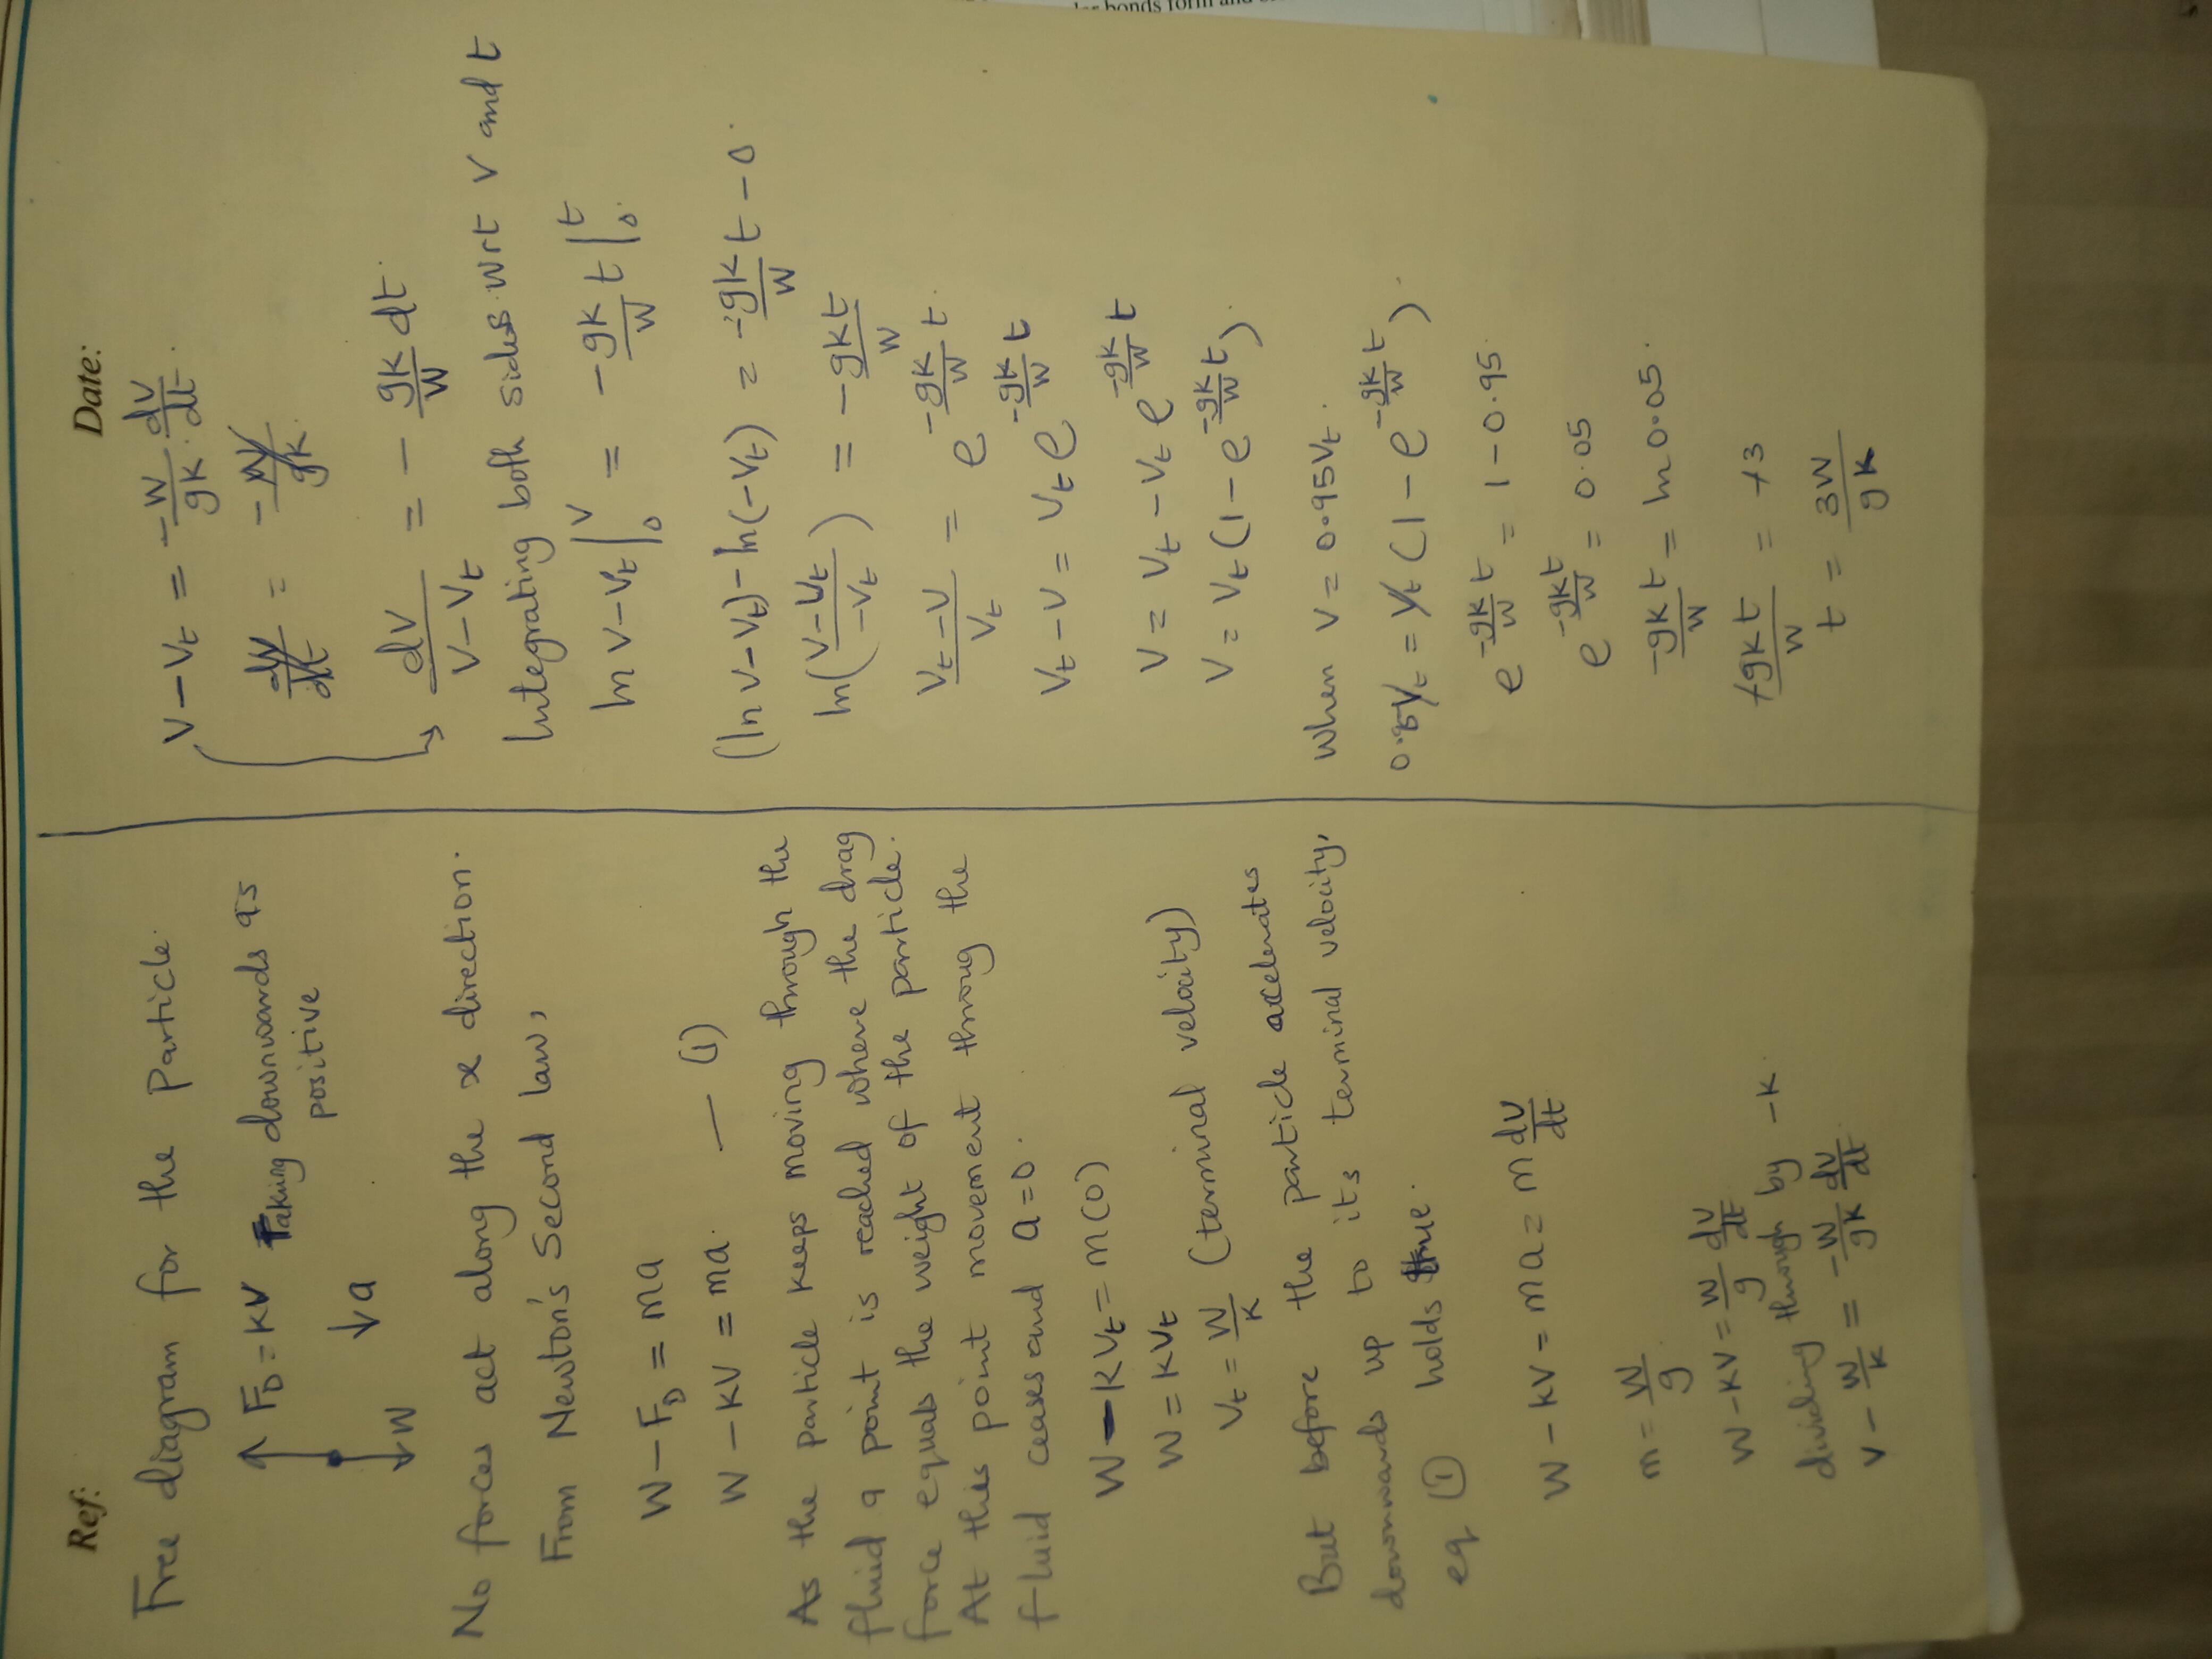 Ref:
Free diagram for the particle.
F_D = KV Taking downwards as
positive
↓a
↓W
No forces act along the x direction.
From Newton's Second law,
W - F_D = ma
W - KV = ma. — (1)
As the particle keeps moving through the
fluid a point is reached where the drag
force equals the weight of the particle.
At this point movement throug the
fluid ceases and a=0.
W - KV_t = m(0)
W = KV_t
V_t = W/K (terminal velocity)
But before the particle accelerates
downwards up to its terminal velocity,
eq ① holds true.
W - KV = ma = m dv/dt
m = W/g
W - KV = W/g dv/dt
dividing through by -K.
V - W/K = -W/gK dv/dt.
Date:
V - V_t = -W/gK . dv/dt.
dv/dt = -W/gK.
dv/(V - V_t) = - gK/W dt.
Integrating both sides wrt V and t
ln V - V_t |_0^V = -gK/W t |_0^t.
(ln V - V_t) - ln(-V_t) = -gK/W t - 0.
ln((V - V_t)/-V_t) = -gKt/W
(V_t - V)/V_t = e^(-gK/W t).
V_t - V = V_t e^(-gK/W t)
V = V_t - V_t e^(-gK/W t)
V = V_t (1 - e^(-gK/W t)).
When V = 0.95V_t.
0.95V_t = V_t (1 - e^(-gK/W t)).
e^(-gK/W t) = 1 - 0.95.
e^(-gKt/W) = 0.05
-gK/W t = ln 0.05.
+gKt/W = +3
t = 3W/gK